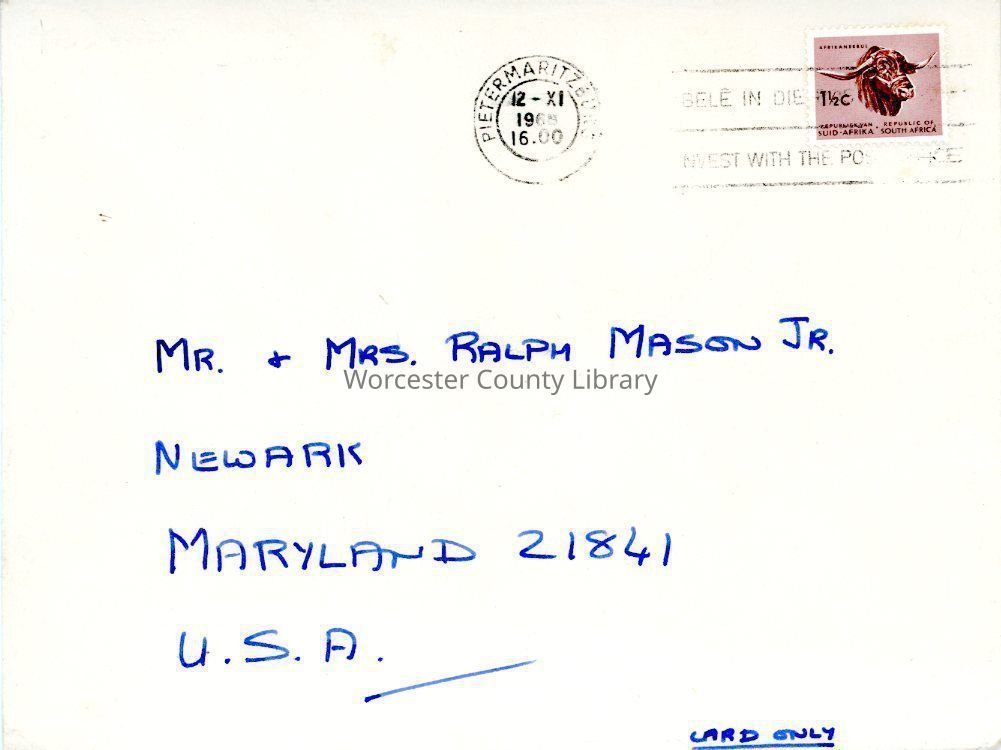 PIETERMARITZBURG
12 - XI
16.00
AFRIKANERBUL
1½c
REPUBLIEK VAN REPUBLIC OF
SUID-AFRIKA SOUTH AFRICA
BELÊ IN DIE
INVEST WITH THE POS
MR. + MRS. RALPH MASON JR.
Worcester County Library
NEWARK
MARYLAND 21841
U.S.A.
CARD ONLY